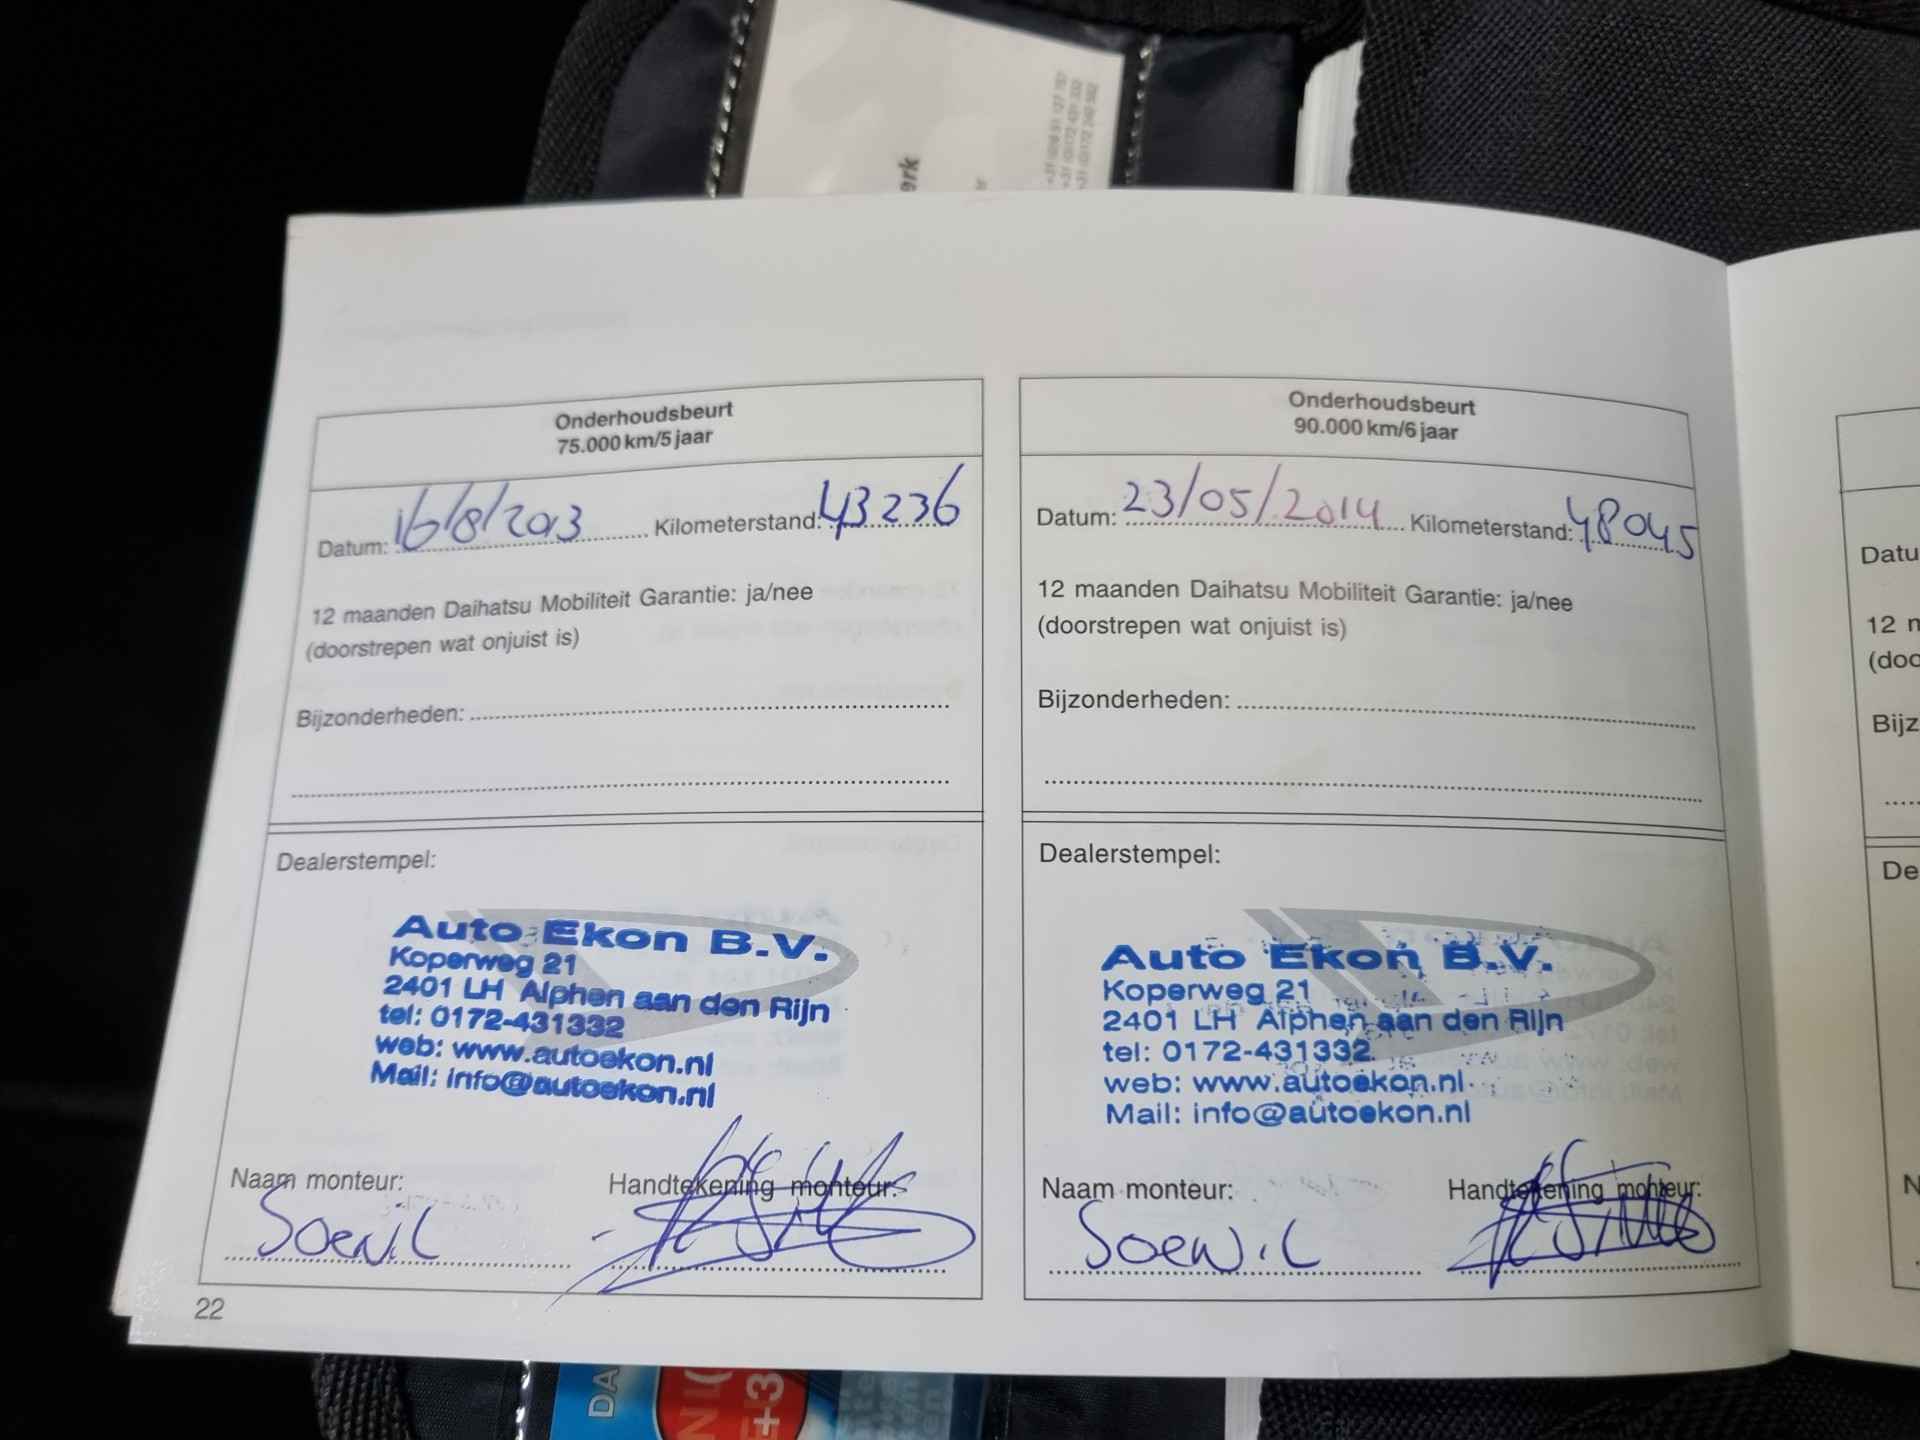 erk
+31 (0)172 431 332
Onderhoudsbeurt
75.000 km/5 jaar
Datum: 16/8/2013 Kilometerstand: 43236
12 maanden Daihatsu Mobiliteit Garantie: ja/nee
(doorstrepen wat onjuist is)
Bijzonderheden:
Dealerstempel:
Auto Ekon B.V.
Koperweg 21
2401 LH Alphen aan den Rijn
tel: 0172-431332
web: www.autoekon.nl
Mail: info@autoekon.nl
Naam monteur: Handtekening monteur:
Soewil
22
Onderhoudsbeurt
90.000 km/6 jaar
Datum: 23/05/2014 Kilometerstand: 48045
12 maanden Daihatsu Mobiliteit Garantie: ja/nee
(doorstrepen wat onjuist is)
Bijzonderheden:
Dealerstempel:
Auto Ekon B.V.
Koperweg 21
2401 LH Alphen aan den Rijn
tel: 0172-431332
web: www.autoekon.nl
Mail: info@autoekon.nl
Naam monteur: Handtekening monteur:
Soewil
Datu
12 m
(doo
Bijz
De
N
DA